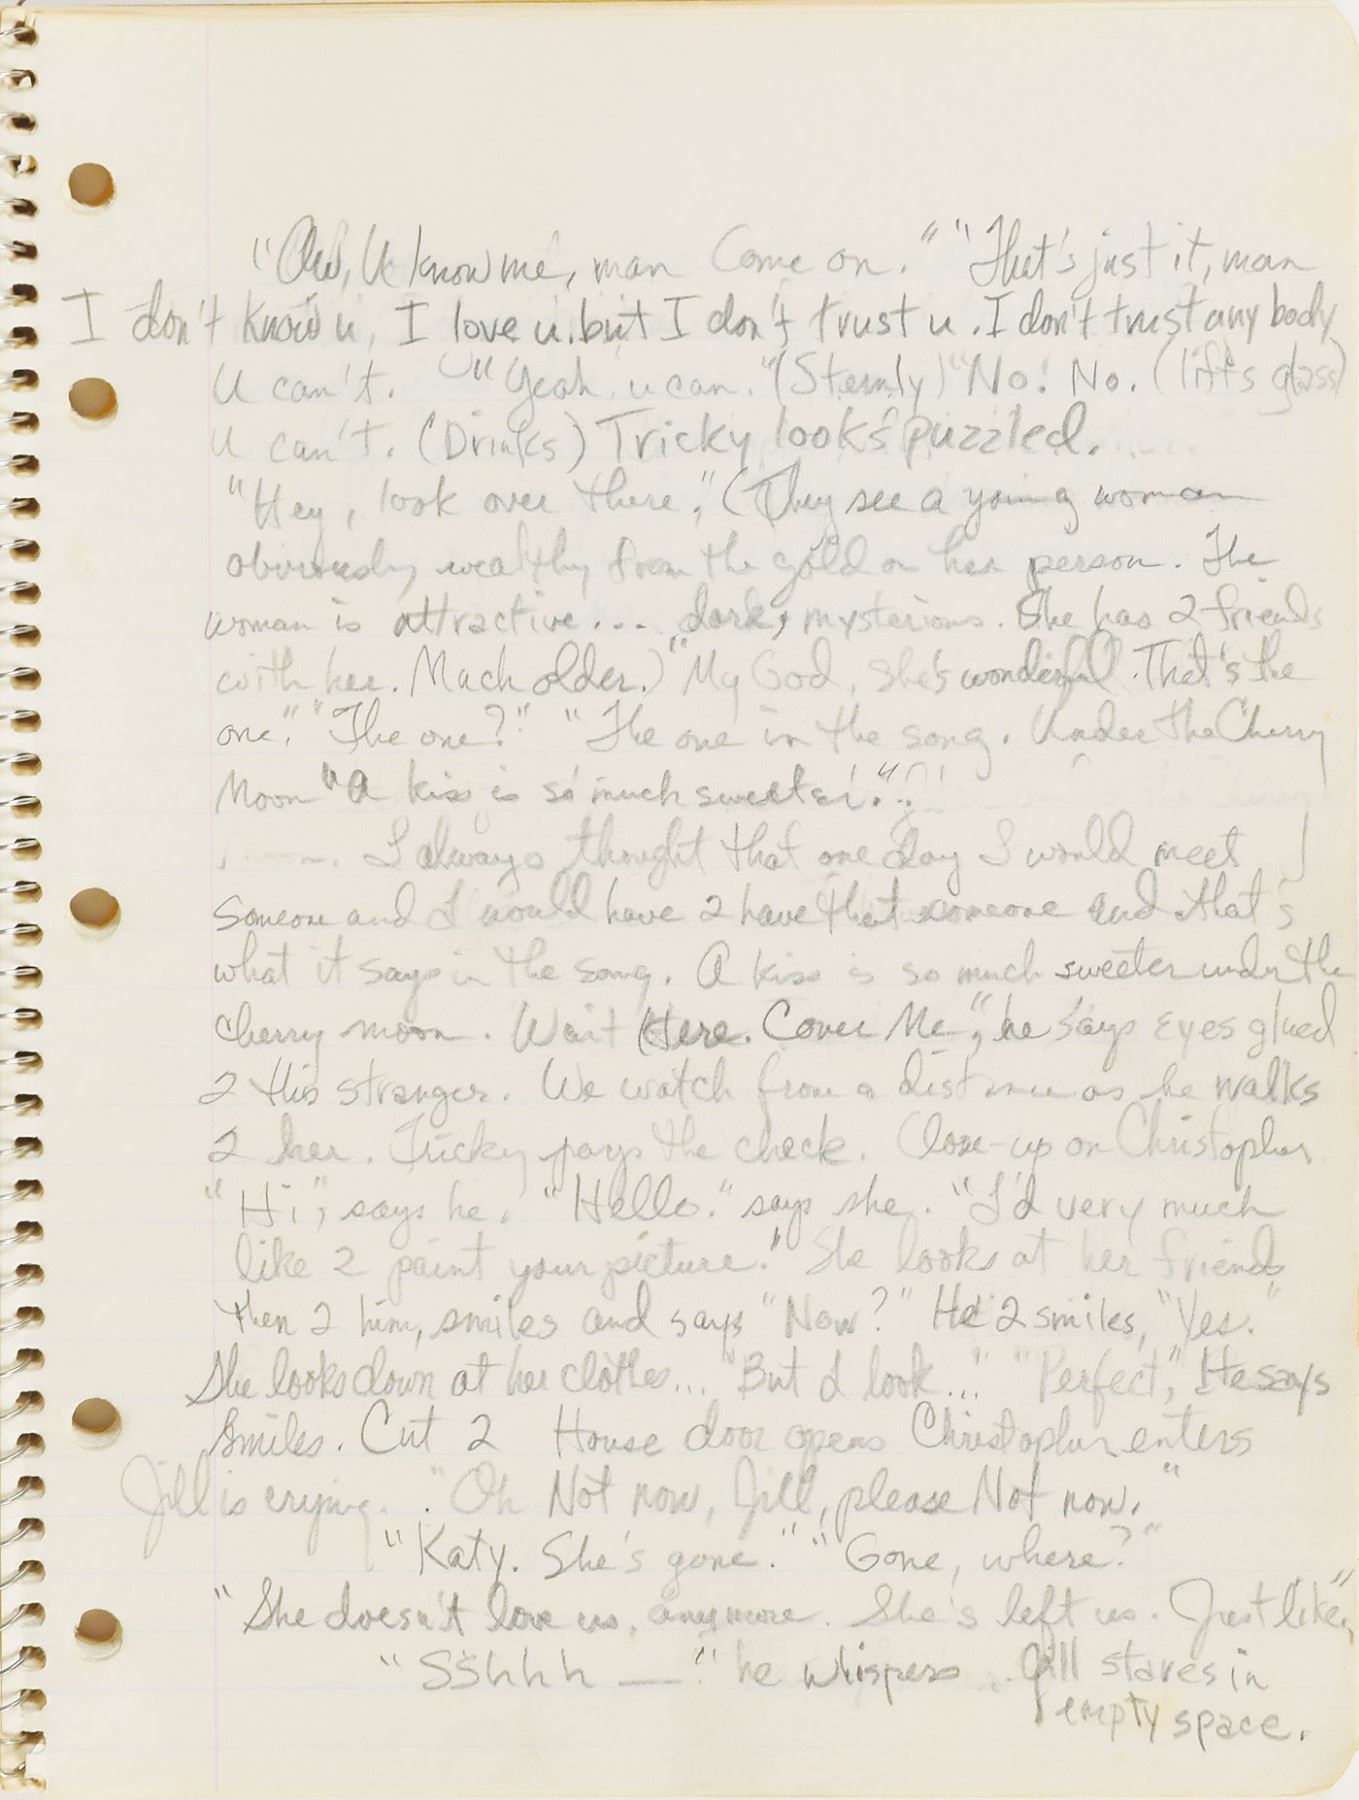 "Aw, U know me, man Come on." "That's just it, man
I don't know u, I love u, but I don't trust u. I don't trust any body
U can't. "Yeah, u can." (Sternly) "No! No. (lifts glass)
U can't. (Drinks) Tricky looks puzzled.
"Hey, look over there," (They see a young woman
obviously wealthy from the gold on her person. The
woman is attractive... dark, mysterious. She has 2 friends
with her. Much older.) "My God, she's wonderful. That's the
one." "The one?" "The one in the song. Under the Cherry
Moon "A kiss is so much sweeter."
I always thought that one day I would meet
someone and I would have 2 have that someone and that's
what it says in the song. A kiss is so much sweeter under the
cherry moon. Wait Here. Cover Me," he says eyes glued
2 this stranger. We watch from a distance as he walks
2 her. Tricky pays the check. Close-up on Christopher
"Hi", says he. "Hello." says she. "I'd very much
like 2 paint your picture." She looks at her friends
then 2 him, smiles and says "Now?" He 2 smiles, "Yes."
She looks down at her clothes... "But I look..." "Perfect," He says
Smiles. Cut 2 House door opens Christopher enters
Jill is crying. "Oh Not now, Jill, please Not now."
"Katy. She's gone." "Gone, where?"
"She doesn't love us, anymore. She's left us. Just like"
"Sshhh —" he whispers. Jill stares in
empty space.